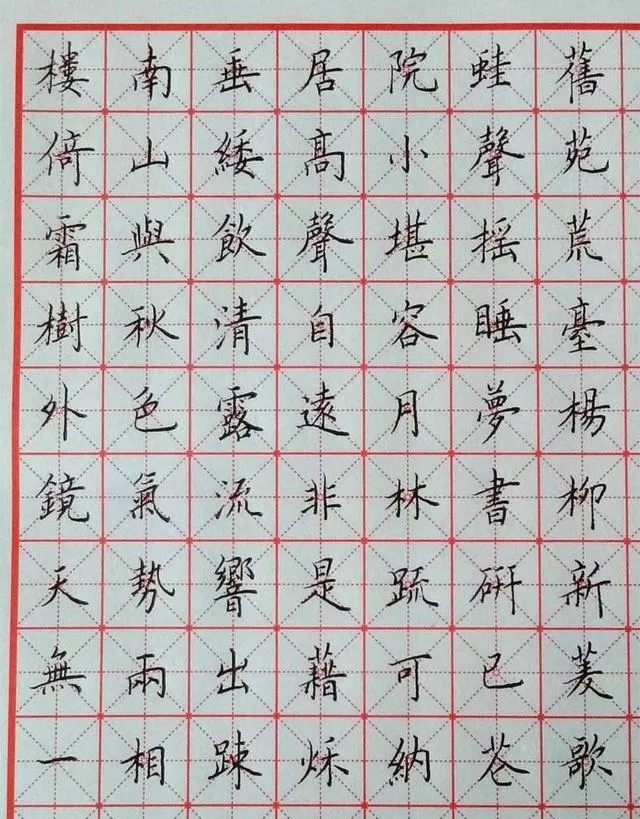 舊苑荒臺楊柳新菱歌
蛙聲摇睡夢書研已
院小堪容月林疏可納
居髙聲自遠非是藉秋
垂緌飲清露流響出踈
南山與秋色氣勢兩相
樓倚霜樹外鏡天無一